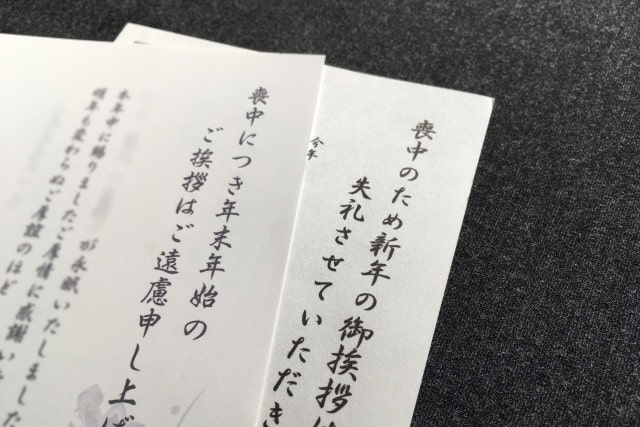 喪中のため新年の御挨拶は
失礼させていただき
今年
喪中につき年末年始の
ご挨拶はご遠慮申し上げ
が永眠いたしました
本年中に賜りましたご厚情に感謝いた
明年も変わらぬご厚誼のほど